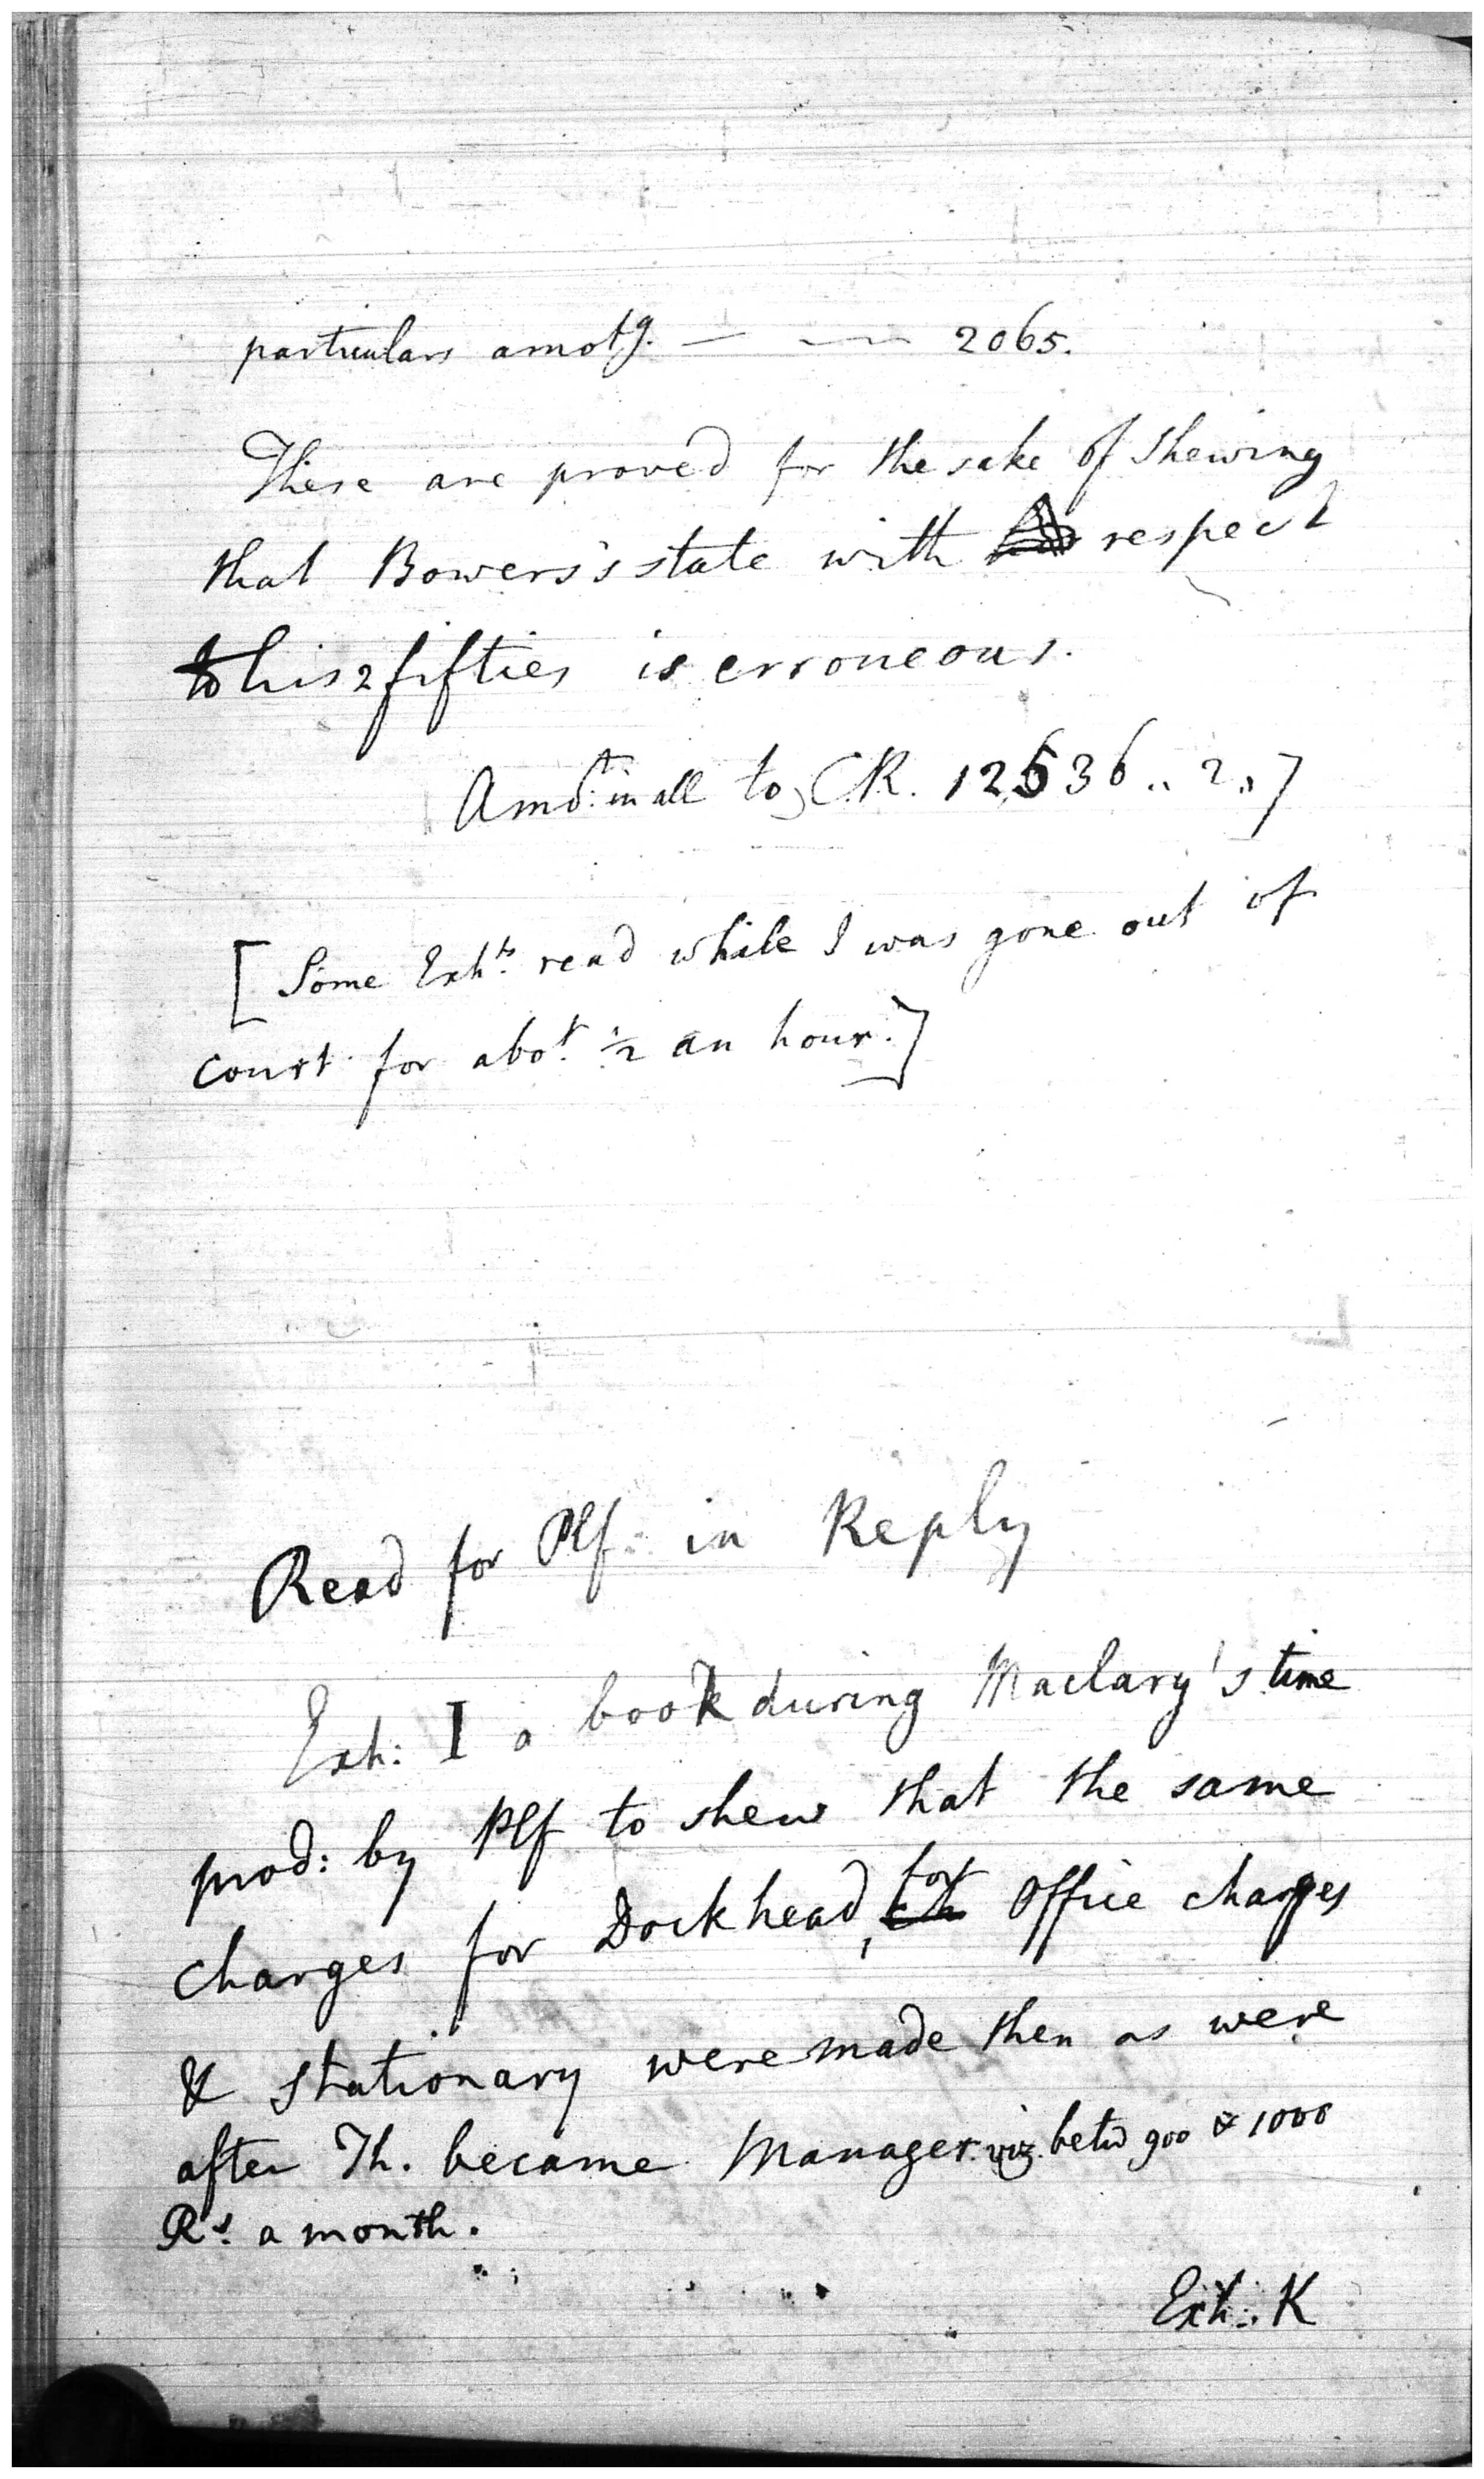 particulars amotg. — — 2065.
These are proved for the sake of shewing
that Bowers's state with respect
to his 2 fifties is erroneous.
Amot: in all to C.R. 12,536 .. 2 .. 7
[Some Exhts. read while I was gone out of
court for abot. ½ an hour.]
Read for Plf: in Reply
Exh: I a book during Maclary's time
prod: by Plf to shew that the same
charges for Dockhead, for Office charges
& stationary were made then as were
after Th. became Manager. viz. betw 900 & 1000
Rs. a month.
Exh: K